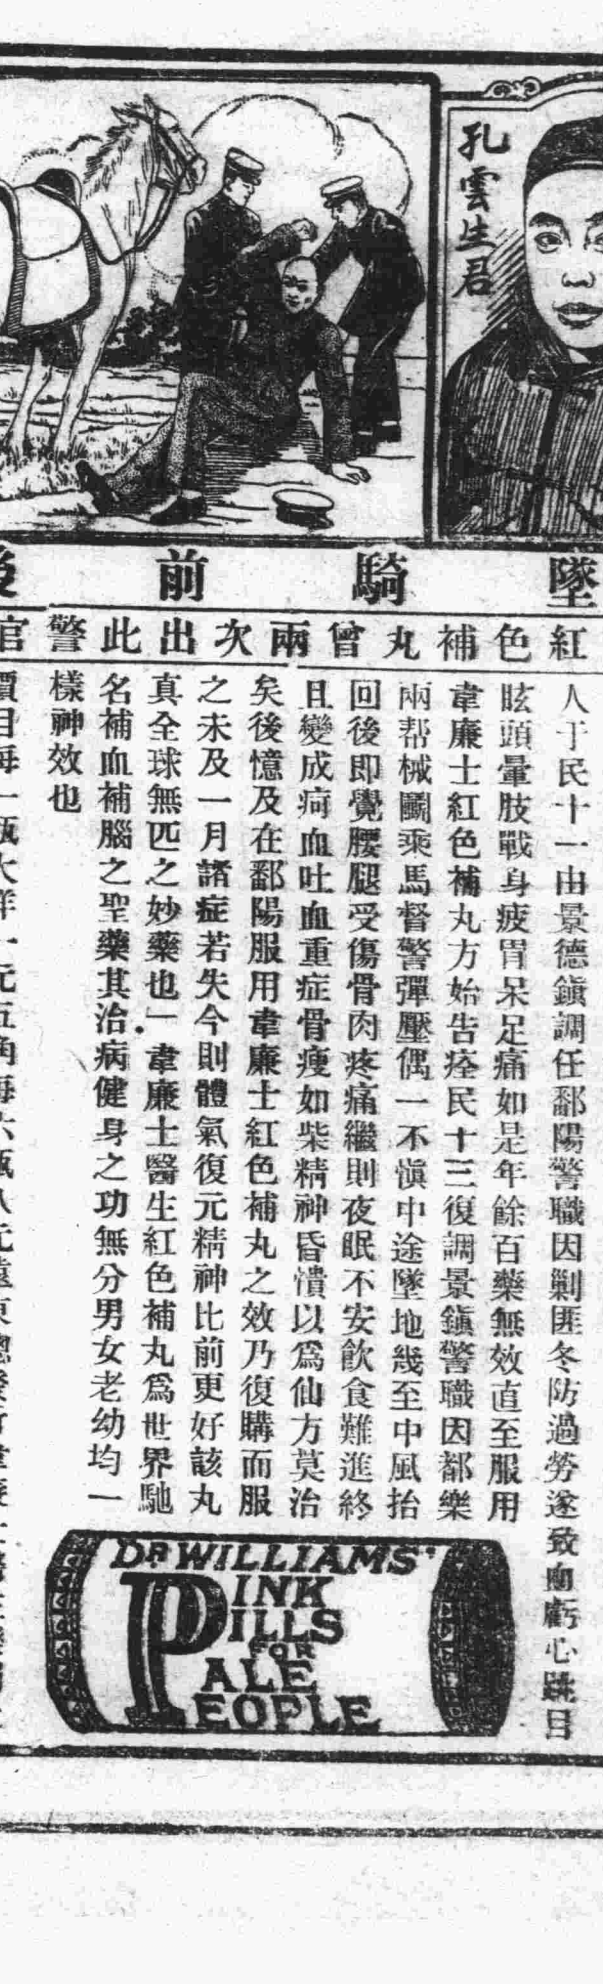 孔雲生君
墜騎前後
紅色補丸曾兩次出此警官
人于民十一由景德鎭調任鄱陽警職因剿匪冬防過勞遂致血虧心跳目
眩頭暈肢戰身疲胃呆足痛如是年餘百藥無效直至服用
韋廉士紅色補丸方始告痊民十三復調景鎭警職因都樂
兩帮械鬭乘馬督警彈壓偶一不愼中途墜地幾至中風抬
回後即覺腰腿受傷骨肉疼痛繼則夜眠不安飲食難進終
且變成疴血吐血重症骨瘦如柴精神昏憒以爲仙方莫治
矣後憶及在鄱陽服用韋廉士紅色補丸之效乃復購而服
之未及一月諸症若失今則體氣復元精神比前更好該丸
真全球無匹之妙藥也」韋廉士醫生紅色補丸爲世界馳
名補血補腦之聖藥其治病健身之功無分男女老幼均一
樣神效也
價目每一瓶大洋一元五角每六瓶八元遠東總發行韋廉士
DR WILLIAMS'
PINK
PILLS
FOR
PALE
PEOPLE